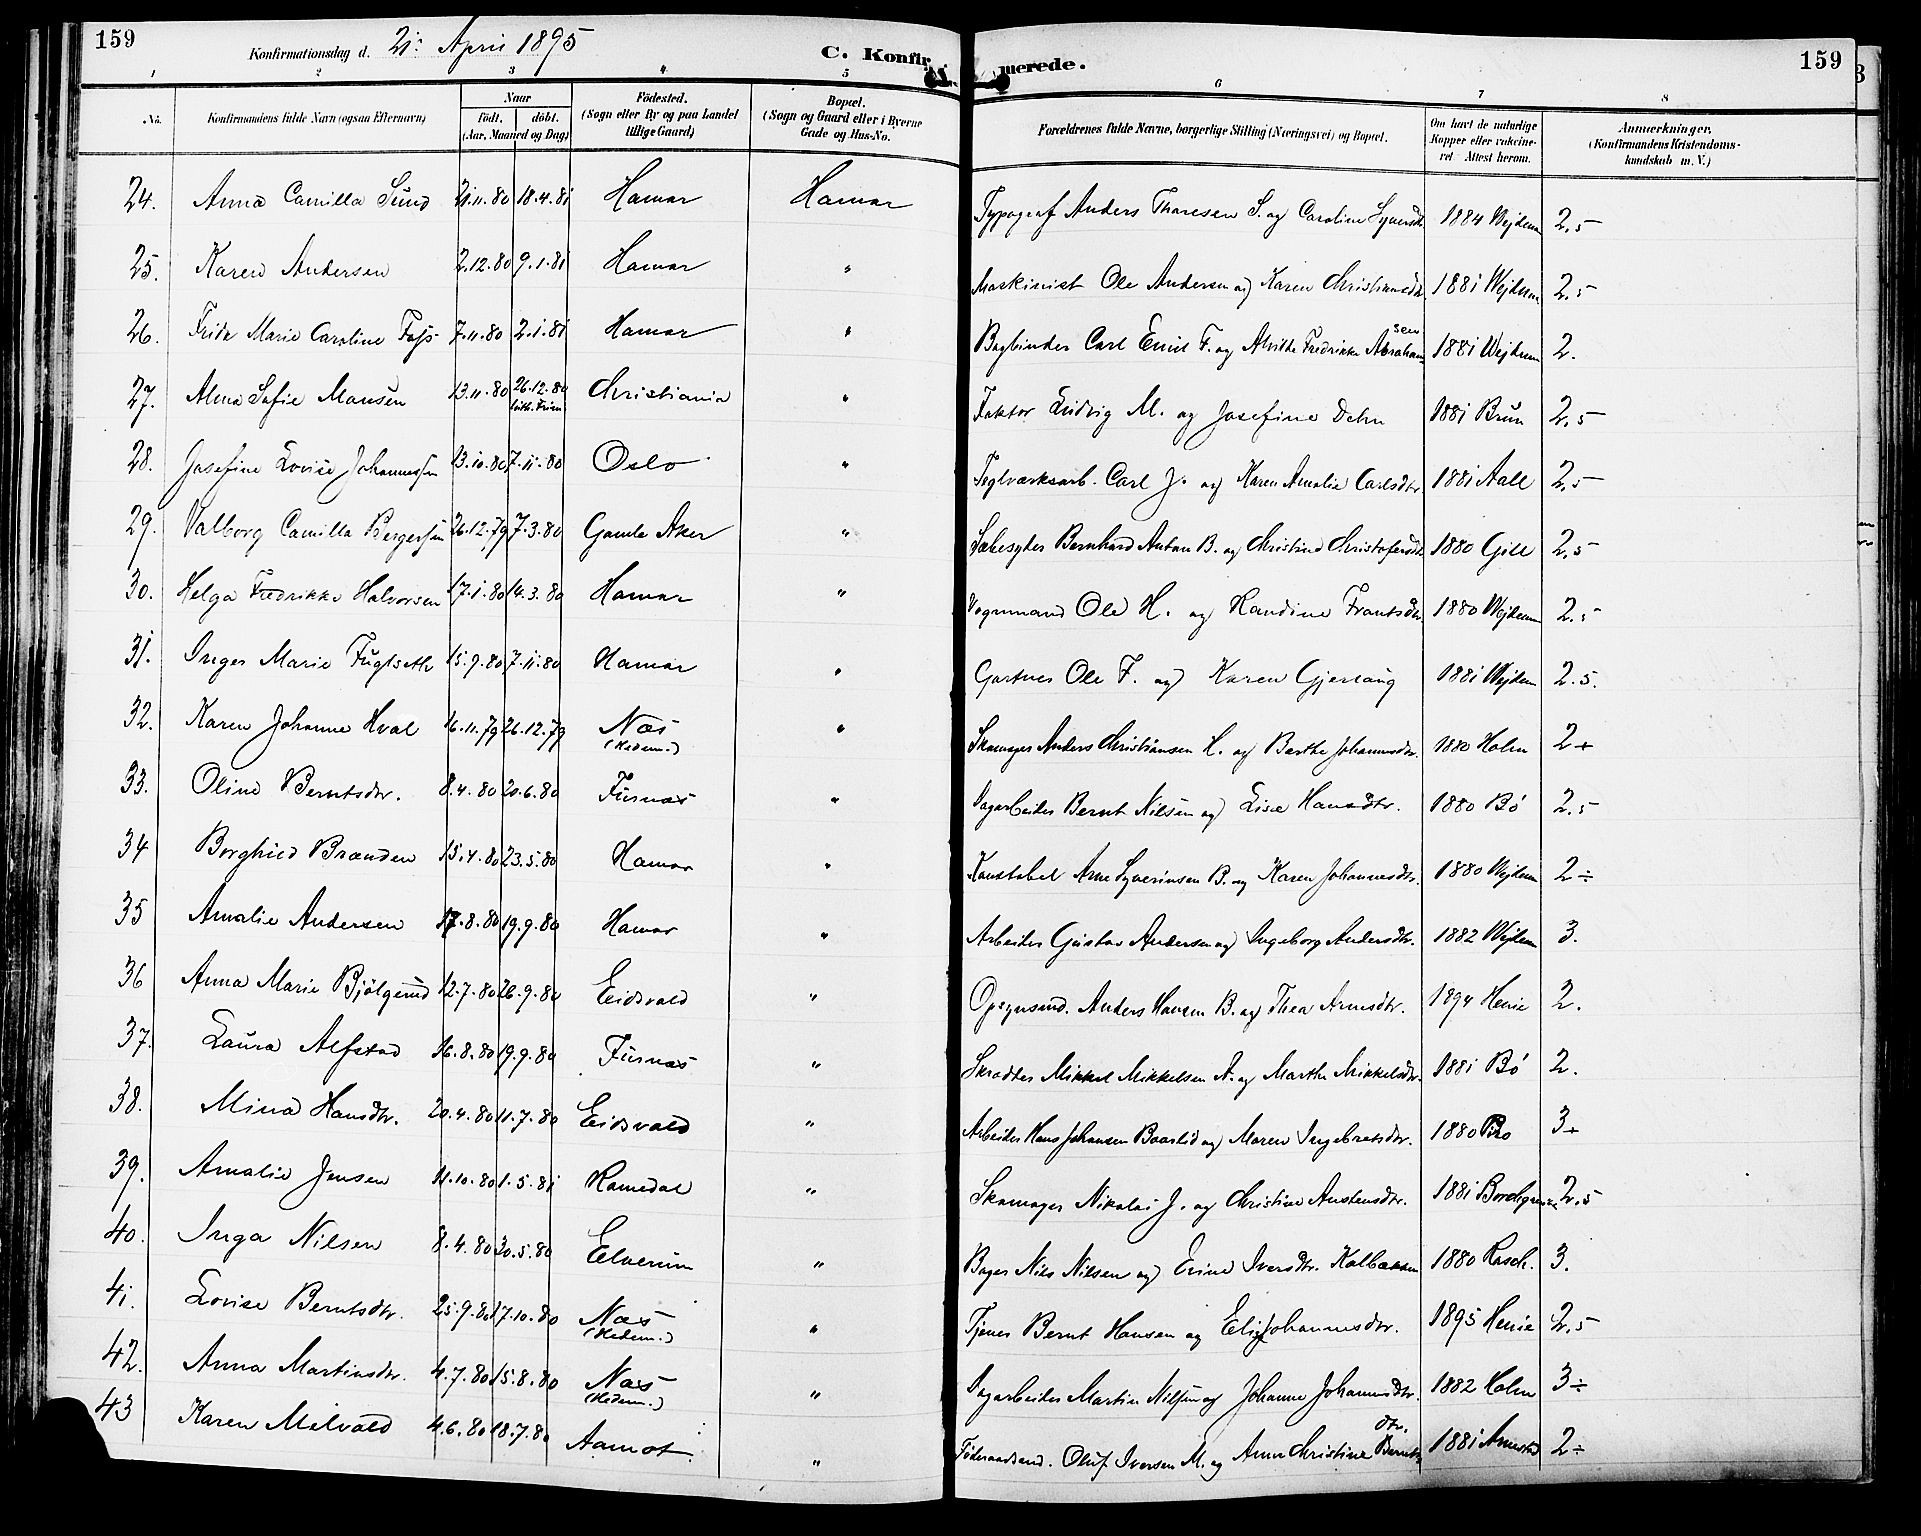 159
Konfirmationsdag d. 21: April 1895
C. Konfirmerede.
159
1 2 3 4 5 6 7 8
No. Konfirmandens fulde Navn (ogsaa Efternavn) Naar født, døbt. (Aar, Maaned og Dag) Fødested. (Sogn eller By og paa Landet tillige Gaard) Bopæl. (Sogn og Gaard eller i Byerne Gade og Hus-No. Forældrenes fulde Navne, borgerlige Stilling (Næringsvei) og Bopæl. Om havt de naturlige Kopper eller vakcineret Attest herom. Anmærkninger. (Konfirmandens Kristendomskundskab m. V.)
24. Anna Camilla Sund 21.11.80 18.4.81 Hamar Hamar Typograf Anders Thoresen S. og Caroline Syversdtr. 1884 Wejdem 2,5
25. Karen Andersen 2.12.80 9.1.81 Hamar " Maskinist Ole Andersen og Karen Christiansdtr. 1881 Wejdem 2,5
26. Frida Marie Caroline Foss 7.11.80 2.1.81 Hamar " Bogbinder Carl Emil F. og Alvilde Fredrikke Abrahamsen 1881 Wejdem 2.
27. Alma Sofie Monsen 13.11.80 26.12.80 Christiania " Faktor Ludvig M. og Josefine Dehn 1881 Brun 2,5
28. Josefine Lovise Johannessen 13.10.80 7.11.80 Oslo " Teglværksarb. Carl J. og Karen Amalie Carlsdtr. 1881 Aall 2,5
29. Valborg Camilla Bergersen 26.12.79 7.3.80 Gamle Aker " Sæbesyder Bernhard Anton B. og Christine Christofersdtr. 1880 Gill 2,5
30. Helga Fredrikke Halvorsen 17.1.80 14.3.80 Hamar " Vognmand Ole H. og Handine Frantsdtr. 1880 Wejdem 2,5
31. Inger Marie Fuglseth 15.9.80 7.11.80 Hamar " Gartner Ole F. og Karen Gjerlaug 1881 Wejdem 2.5.
32. Karen Johanne Hval 16.11.79 26.12.79 Næs (Hedem.) " Skomager Anders Christiansen H. og Berthe Johannesdtr. 1880 Holm 2+
33. Oline Berntsdtr. 8.4.80 20.6.80 Furnæs " Sagarbeider Bernt Nilsen og Lise Hansdtr. 1880 Bø 2,5
34 Borghild Brænden 15.4.80 23.5.80 Hamar " Konstabel Arne Syverinsen B. og Karen Johannesdtr. 1880 Wejdem 2÷
35 Amalie Andersen 17.8.80 19.9.80 Hamar " Arbeider Gustav Andersen og Ingeborg Andersdtr. 1882 Wejdem 3.
36 Anna Marie Bjølgerud 12.7.80 26.9.80 Eidsvold " Opsynsmd. Anders Hansen B. og Thea Arnesdtr. 1894 Henie 2.
37. Laura Alfstad 16.8.80 19.9.80 Furnæs " Skrædder Mikkel Mikkelsen A. og Marthe Mikkelsdtr. 1881 Bø 2.
38. Mina Hansdtr. 20.4.80 11.7.80 Eidsvold " Arbeider Hans Johansen Baarlid og Maren Ingebretsdtr. 1880 3+
39. Amalie Jensen 11.10.80 1.5.81 Romedal " Skomager Nikolai J. og Christine Austensdtr. 1881 Borchgrevink 2,5
40. Inga Nilsen 8.4.80 30.5.80 Elverum " Bager Nils Nilsen og Erine Iversdtr. Kolbækken 1880 Rasch. 3.
41. Lovise Berntsdtr. 25.9.80 17.10.80 Næs (Hedem.) " Tjener Bernt Hansen og Elis Johannesdtr. 1895 Henie 2,5
42. Anna Martinsdtr. 4.7.80 15.8.80 Næs (Hedem.) " Sagarbeider Martin Nilsen og Johanne Johannesdtr. 1882 Holm 3÷
43 Karen Melvold 4.6.80 18.7.80 Aamot " Føderaadsmd. Oluf Iversen M. og Anne Christine Berntsdtr. 1881 2÷